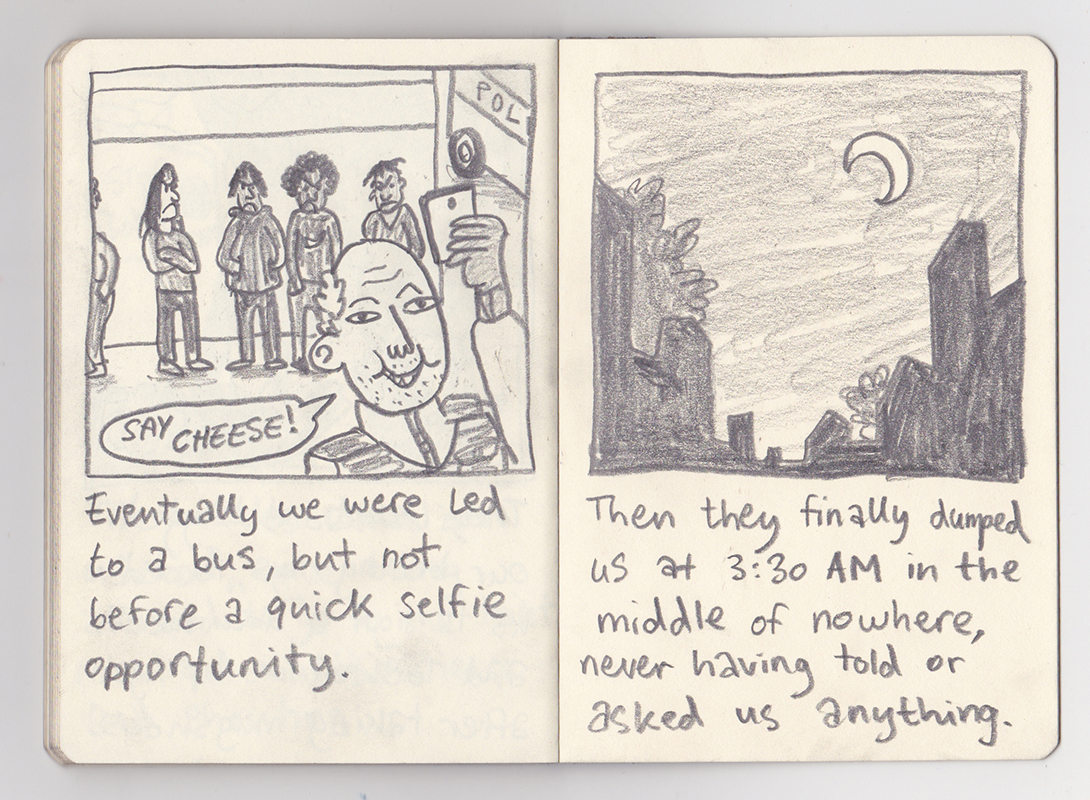 POL
SAY CHEESE!
Eventually we were led
to a bus, but not
before a quick selfie
opportunity.
Then they finally dumped
us at 3:30 AM in the
middle of nowhere,
never having told or
asked us anything.